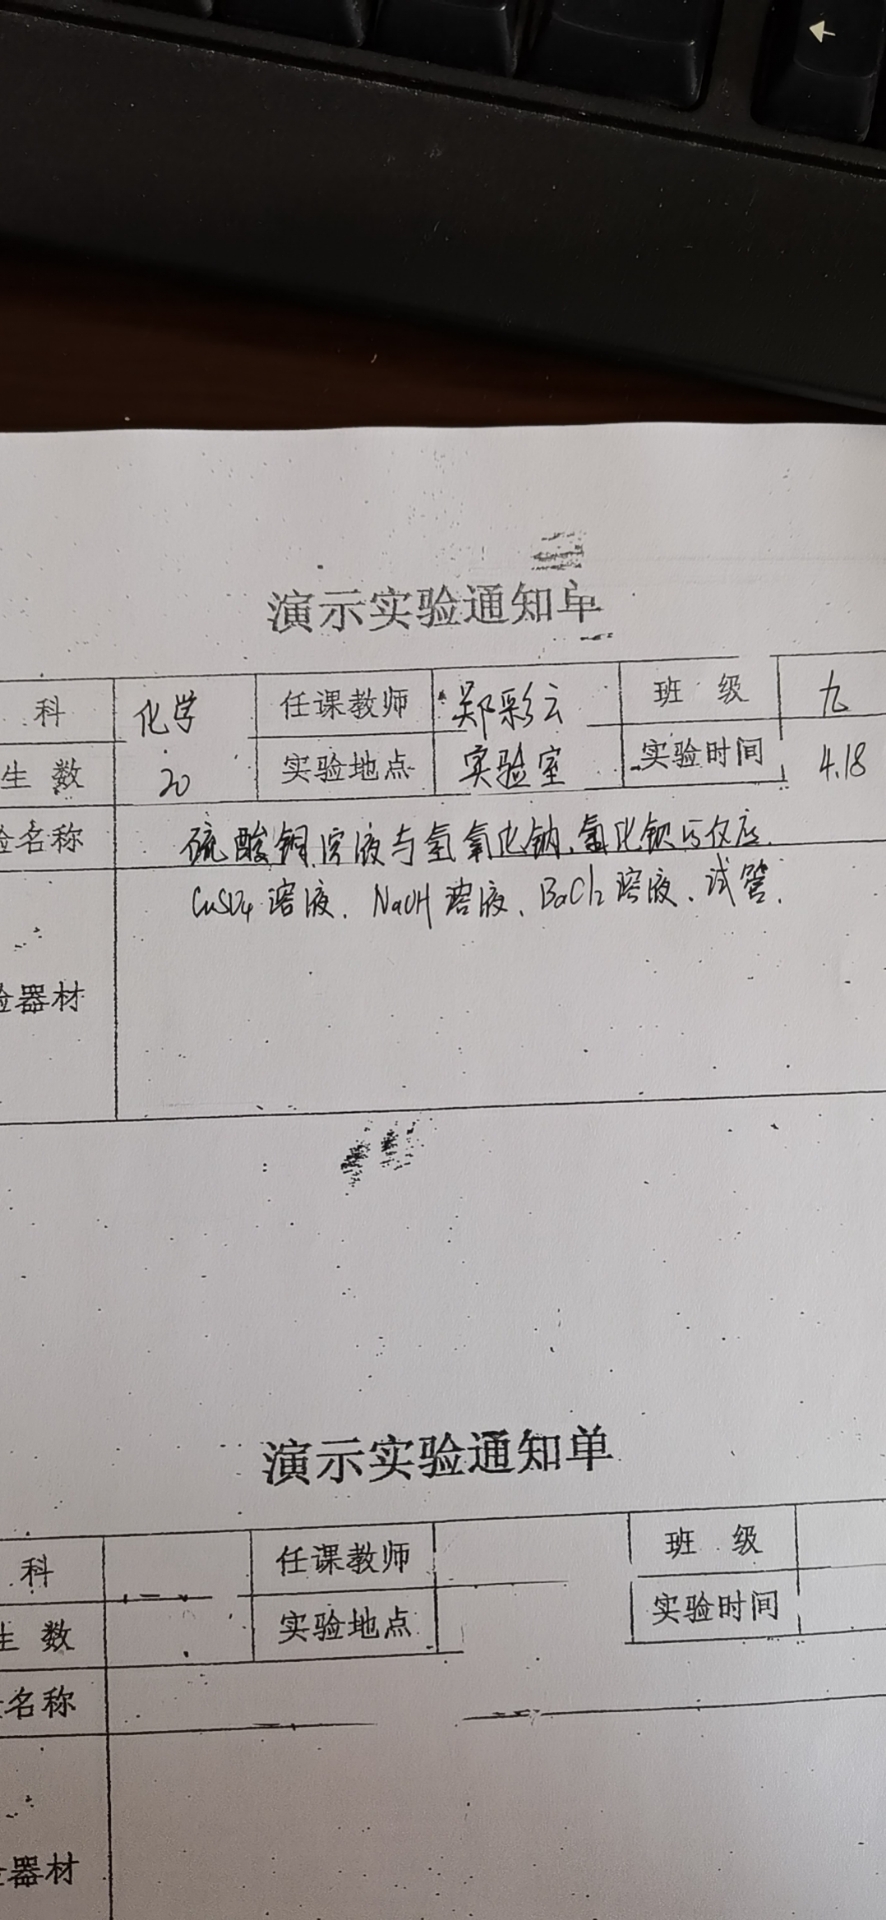 演示实验通知单
科 化学 任课教师 郑彩云 班 级 九
生 数 20 实验地点 实验室 实验时间 4.18
验名称 硫酸铜溶液与氢氧化钠、氯化钡的反应
CuSO4溶液、NaOH溶液、BaCl2溶液、试管.
验器材
演示实验通知单
科 任课教师 班 级
生 数 实验地点 实验时间
名称
器材